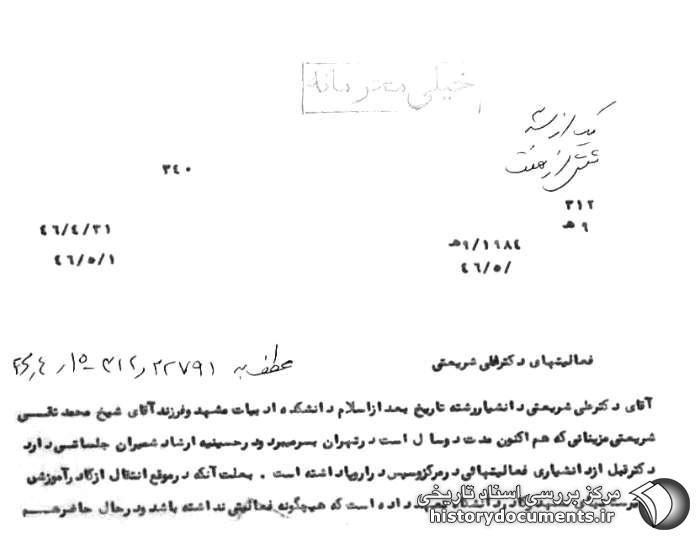 خیلی محرمانه
یک از سه
شش از هفت
۳۴۰
۳۱۲
۹ هـ
۴۶/۴/۳۱
۹/۱۹۸۴هـ
۴۶/۵/۱
۴۶/۵/
فعالیتهای دکترعلی شریعتی
عطف به ۳۱۲/۲۲۷۹۱
آقای دکترعلی شریعتی دانشیاررشته تاریخ بعدازاسلام دانشکده ادبیات مشهد وفرزندآقای شیخ محمد تقی
شریعتی مزینانی که هم اکنون مدت دوسال است درتهران بسرمیبرد ودرحسینیه ارشاد شمیران جلساتی دارد
دکترقبل ازدانشیاری فعالیتهائی درمرکزوسپس دراروپاداشته است . بعلت آنکه درموقع انتقال ازکادرآموزشی
داده است که هیچگونه فعالیتی نداشته باشد ودرحال حاضرهم
مرکز بررسی اسناد تاریخی
historydocuments.ir